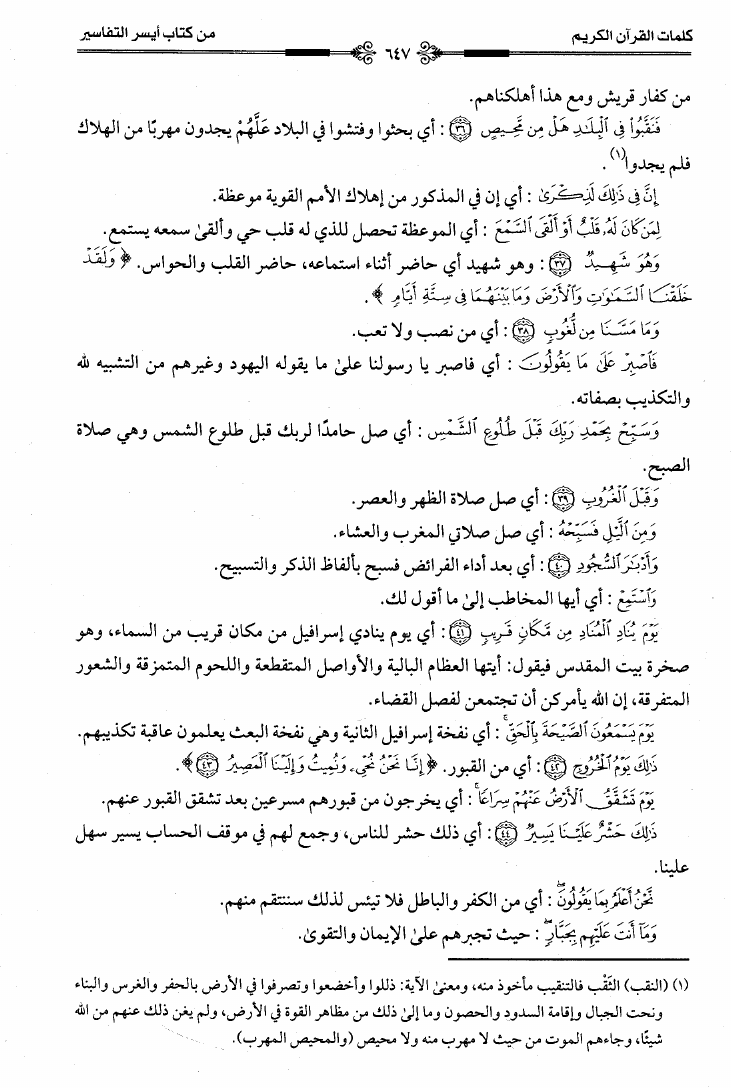 كلمات القرآن الكريم
٦٤٧
من كتاب أيسر التفاسير
من كفار قريش ومع هذا أهلكناهم.
فَنَقَّبُوا۟ فِى ٱلْبِلَـٰدِ هَلْ مِن مَّحِيصٍ ﴿٣٦﴾ : أي بحثوا وفتشوا في البلاد عَلَّهُمْ يجدون مهربًا من الهلاك
فلم يجدوا(١) .
إِنَّ فِى ذَٰلِكَ لَذِكْرَىٰ : أي إن في المذكور من إهلاك الأمم القوية موعظة.
لِمَن كَانَ لَهُۥ قَلْبٌ أَوْ أَلْقَى ٱلسَّمْعَ : أي الموعظة تحصل للذي له قلب حي وألقىٰ سمعه يستمع.
وَهُوَ شَهِيدٌ ﴿٣٧﴾ : وهو شهيد أي حاضر أثناء استماعه، حاضر القلب والحواس. ﴿ وَلَقَدْ
خَلَقْنَا ٱلسَّمَـٰوَٰتِ وَٱلْأَرْضَ وَمَا بَيْنَهُمَا فِى سِتَّةِ أَيَّامٍ ﴾.
وَمَا مَسَّنَا مِن لُّغُوبٍ ﴿٣٨﴾ : أي من نصب ولا تعب.
فَٱصْبِرْ عَلَىٰ مَا يَقُولُونَ : أي فاصبر يا رسولنا علىٰ ما يقوله اليهود وغيرهم من التشبيه لله
والتكذيب بصفاته.
وَسَبِّحْ بِحَمْدِ رَبِّكَ قَبْلَ طُلُوعِ ٱلشَّمْسِ : أي صل حامدًا لربك قبل طلوع الشمس وهي صلاة
الصبح.
وَقَبْلَ ٱلْغُرُوبِ ﴿٣٩﴾ : أي صل صلاة الظهر والعصر.
وَمِنَ ٱلَّيْلِ فَسَبِّحْهُ : أي صل صلاتي المغرب والعشاء.
وَأَدْبَـٰرَ ٱلسُّجُودِ ﴿٤٠﴾ : أي بعد أداء الفرائض فسبح بألفاظ الذكر والتسبيح.
وَٱسْتَمِعْ : أي أيها المخاطب إلىٰ ما أقول لك.
يَوْمَ يُنَادِ ٱلْمُنَادِ مِن مَّكَانٍ قَرِيبٍ ﴿٤١﴾ : أي يوم ينادي إسرافيل من مكان قريب من السماء، وهو
صخرة بيت المقدس فيقول: أيتها العظام البالية والأواصل المتقطعة واللحوم المتمزقة والشعور
المتفرقة، إن الله يأمركن أن تجتمعن لفصل القضاء.
يَوْمَ يَسْمَعُونَ ٱلصَّيْحَةَ بِٱلْحَقِّ ۚ : أي نفخة إسرافيل الثانية وهي نفخة البعث يعلمون عاقبة تكذيبهم.
ذَٰلِكَ يَوْمُ ٱلْخُرُوجِ ﴿٤٢﴾ : أي من القبور. ﴿ إِنَّا نَحْنُ نُحْىِۦ وَنُمِيتُ وَإِلَيْنَا ٱلْمَصِيرُ ﴿٤٣﴾ ﴾.
يَوْمَ تَشَقَّقُ ٱلْأَرْضُ عَنْهُمْ سِرَاعًا ۚ : أي يخرجون من قبورهم مسرعين بعد تشقق القبور عنهم.
ذَٰلِكَ حَشْرٌ عَلَيْنَا يَسِيرٌ ﴿٤٤﴾ : أي ذلك حشر للناس، وجمع لهم في موقف الحساب يسير سهل
علينا.
نَّحْنُ أَعْلَمُ بِمَا يَقُولُونَ ۖ : أي من الكفر والباطل فلا تيئس لذلك سننتقم منهم.
وَمَآ أَنتَ عَلَيْهِم بِجَبَّارٍ ۖ : حيث تجبرهم علىٰ الإيمان والتقوىٰ.
(١) (النقب) الثَقْب فالتنقيب مأخوذ منه، ومعنىٰ الآية: ذللوا وأخضعوا وتصرفوا في الأرض بالحفر والغرس والبناء
ونحت الجبال وإقامة السدود والحصون وما إلىٰ ذلك من مظاهر القوة في الأرض، ولم يغن ذلك عنهم من الله
شيئًا، وجاءهم الموت من حيث لا مهرب منه ولا محيص (والمحيص المهرب).